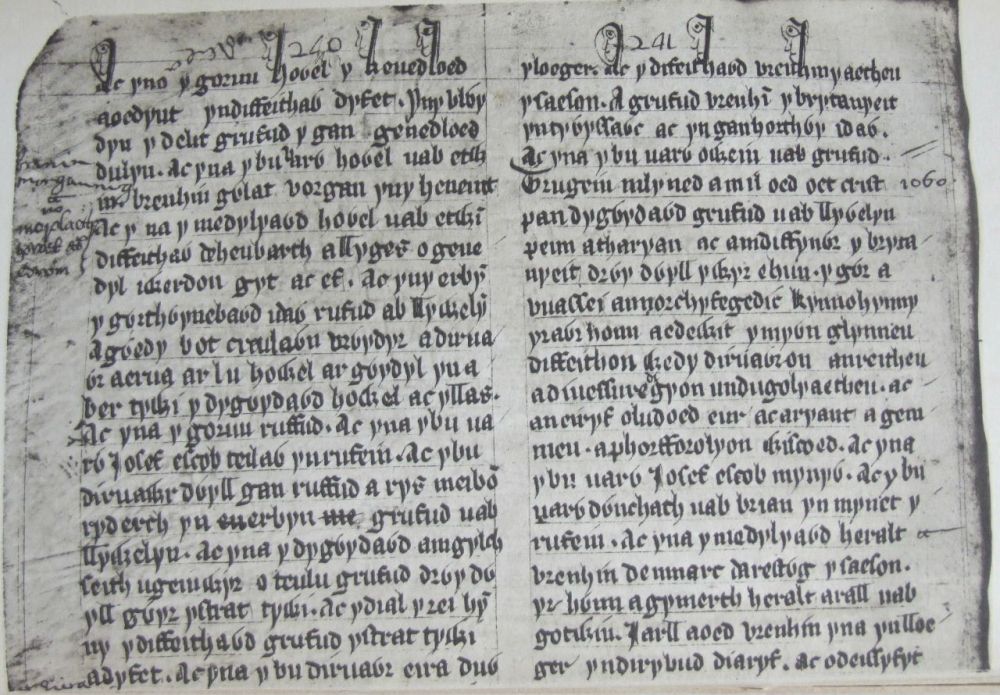 240
Ac yno y goruu hoỽel y kenedloed
aoedynt yndiffeithaỽ dyfet. yny vlỽy
dyn y delit grufud y gan genedloed
dulyn. Ac yna y bu uarỽ hoỽel uab etỽin
brenhin gỽlat vorgan yny heneint
Ac y na y medylyaỽd hoỽel uab etỽin
diffeithaỽ deheubarth a llyges o gene
dyl iwerdon gyt ac ef. Ac yny erbyn
y gỽrthỽynebaỽd idaỽ rufud ab llywelyn
Agỽedy bot creulaỽn vrỽydyr a dirua
ỽr aerua ar lu howel ar gỽydyl yn a
ber tywi y dygỽydaỽd howel ac y llas.
Ac yna y goruu ruffud. Ac yna y bu ua
rỽ Josef escob teilaỽ yn rufein. Ac y bu
diruaỽr dỽyll gan ruffud a rys meibon
ryderch yn erbyn grufud uab
llywelyn. Ac yna y dygỽydaỽd amgylch
seith ugeinwyr o teulu grufud drỽy dỽ
yll gỽyr ystrat tywi. Ac y dial y rei hyn
ny y diffeithaỽd grufud ystrat tywi
a dyfet. Ac yna y bu diruaỽr eira duỽ
241
y loeger. Ac y diffeithaỽd vrenhinyaetheu
y saeson. A grufud vrenhin y brytanyeit
yn tyỽyssaỽc ac yn ganhorthỽy idaỽ.
Ac yna y bu uarỽ owein uab grufud.
Trugein mlyned a mil oed oet crist
1060
pan dygỽydaỽd grufud uab llyỽelyn
penn a tharyan ac amdiffynỽr y bryta
nyeit drỽy dỽyll y wyr ehun. y gỽr a
vuassei annorchyfegedic kynno hynny
yr aỽr honn a edewit y myỽn glynneu
diffeithon wedy diruaỽron anreitheu
a diuessuredigyon uudugolyaetheu. ac
aneiryf oludoed eur ac aryant a gem
meu. a phorfforolyon wiscoed. Ac yna
y bu uarỽ Josef escob mynyỽ. Ac y bu
uarỽ dỽnchath uab brian yn mynet y
rufein. Ac yna y medylyaỽd heralt
vrenhin denmarc darestỽg y saeson.
yr hỽnn a gymerth heralt arall uab
gotwin. Jarll a oed vrenhin yna yn lloe
ger yn dirybud diaryf. ac o deissyfyt